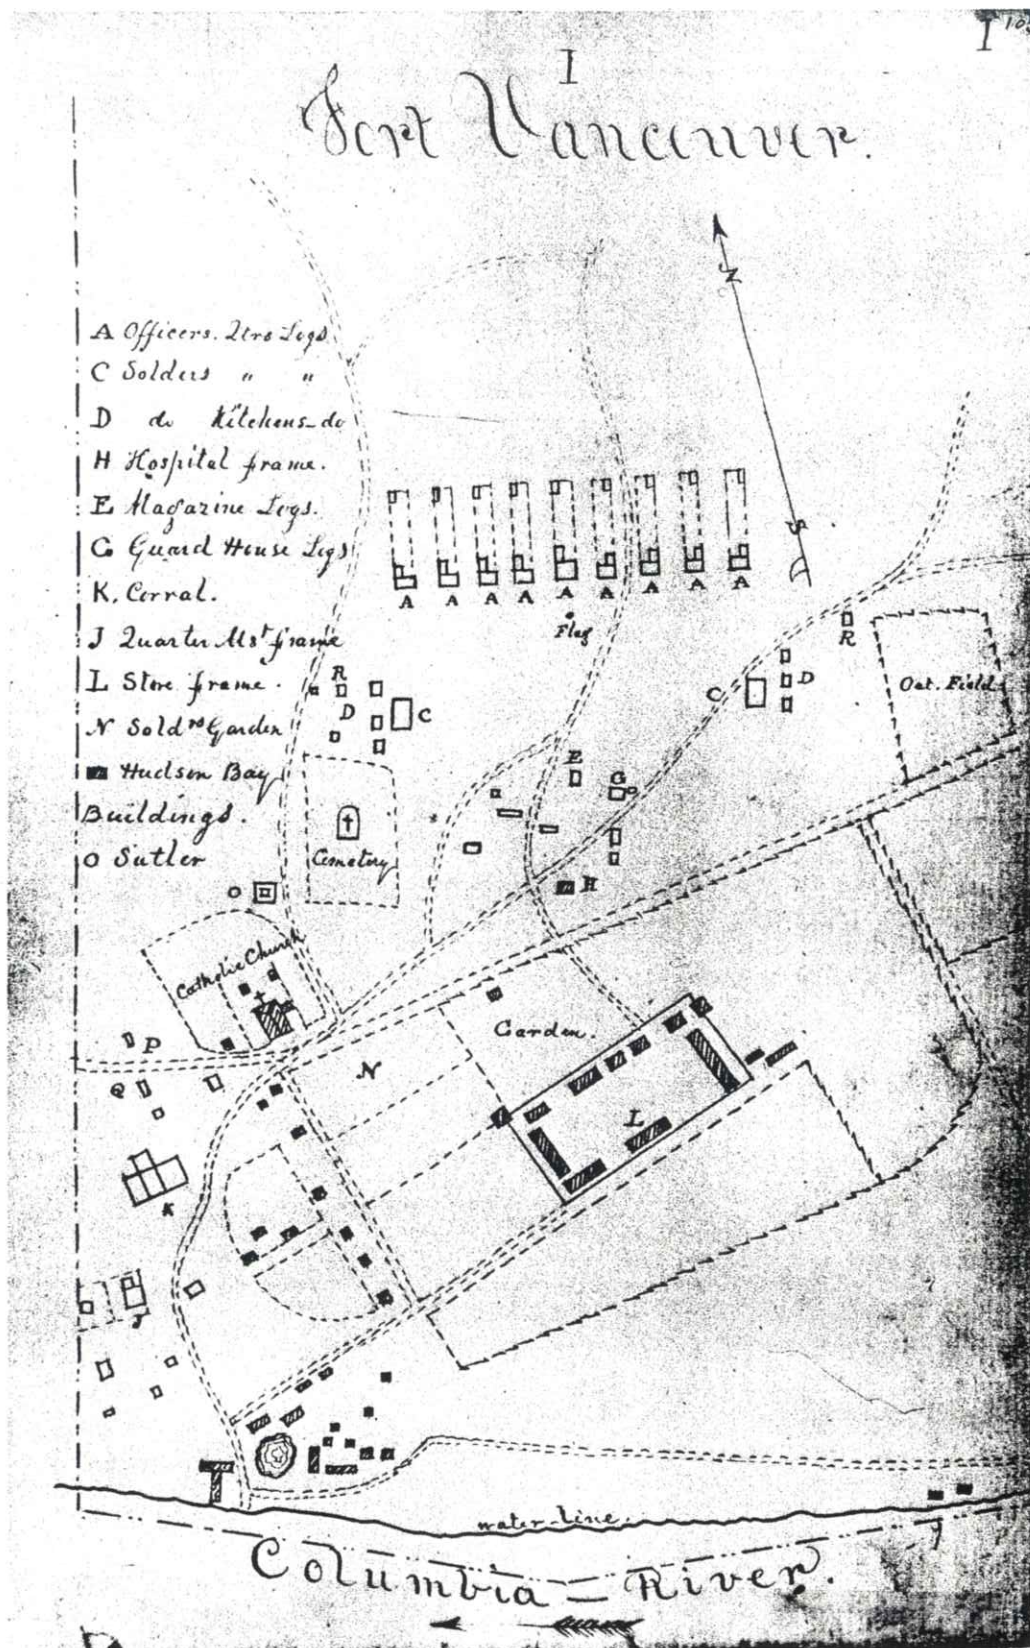 I 10
I
Fort Vancouver.
N
S
A Officers. Qtrs Logs
C Solders " "
D do Kitchens-do
H Hospital frame.
E Magazine Logs.
G Guard House Logs
K. Corral.
J Quarter Mst frame
L Store frame.
N Sold rs Garden
Hudson Bay
Buildings.
O Sutler
A A A A A A A A A
Flag
R
R
D
C
C
D
Oat. Field
E
G
Cemetery
H
O
Catholic Church
P
Garden.
N
Q
L
K
J
water-line.
Columbia – River.